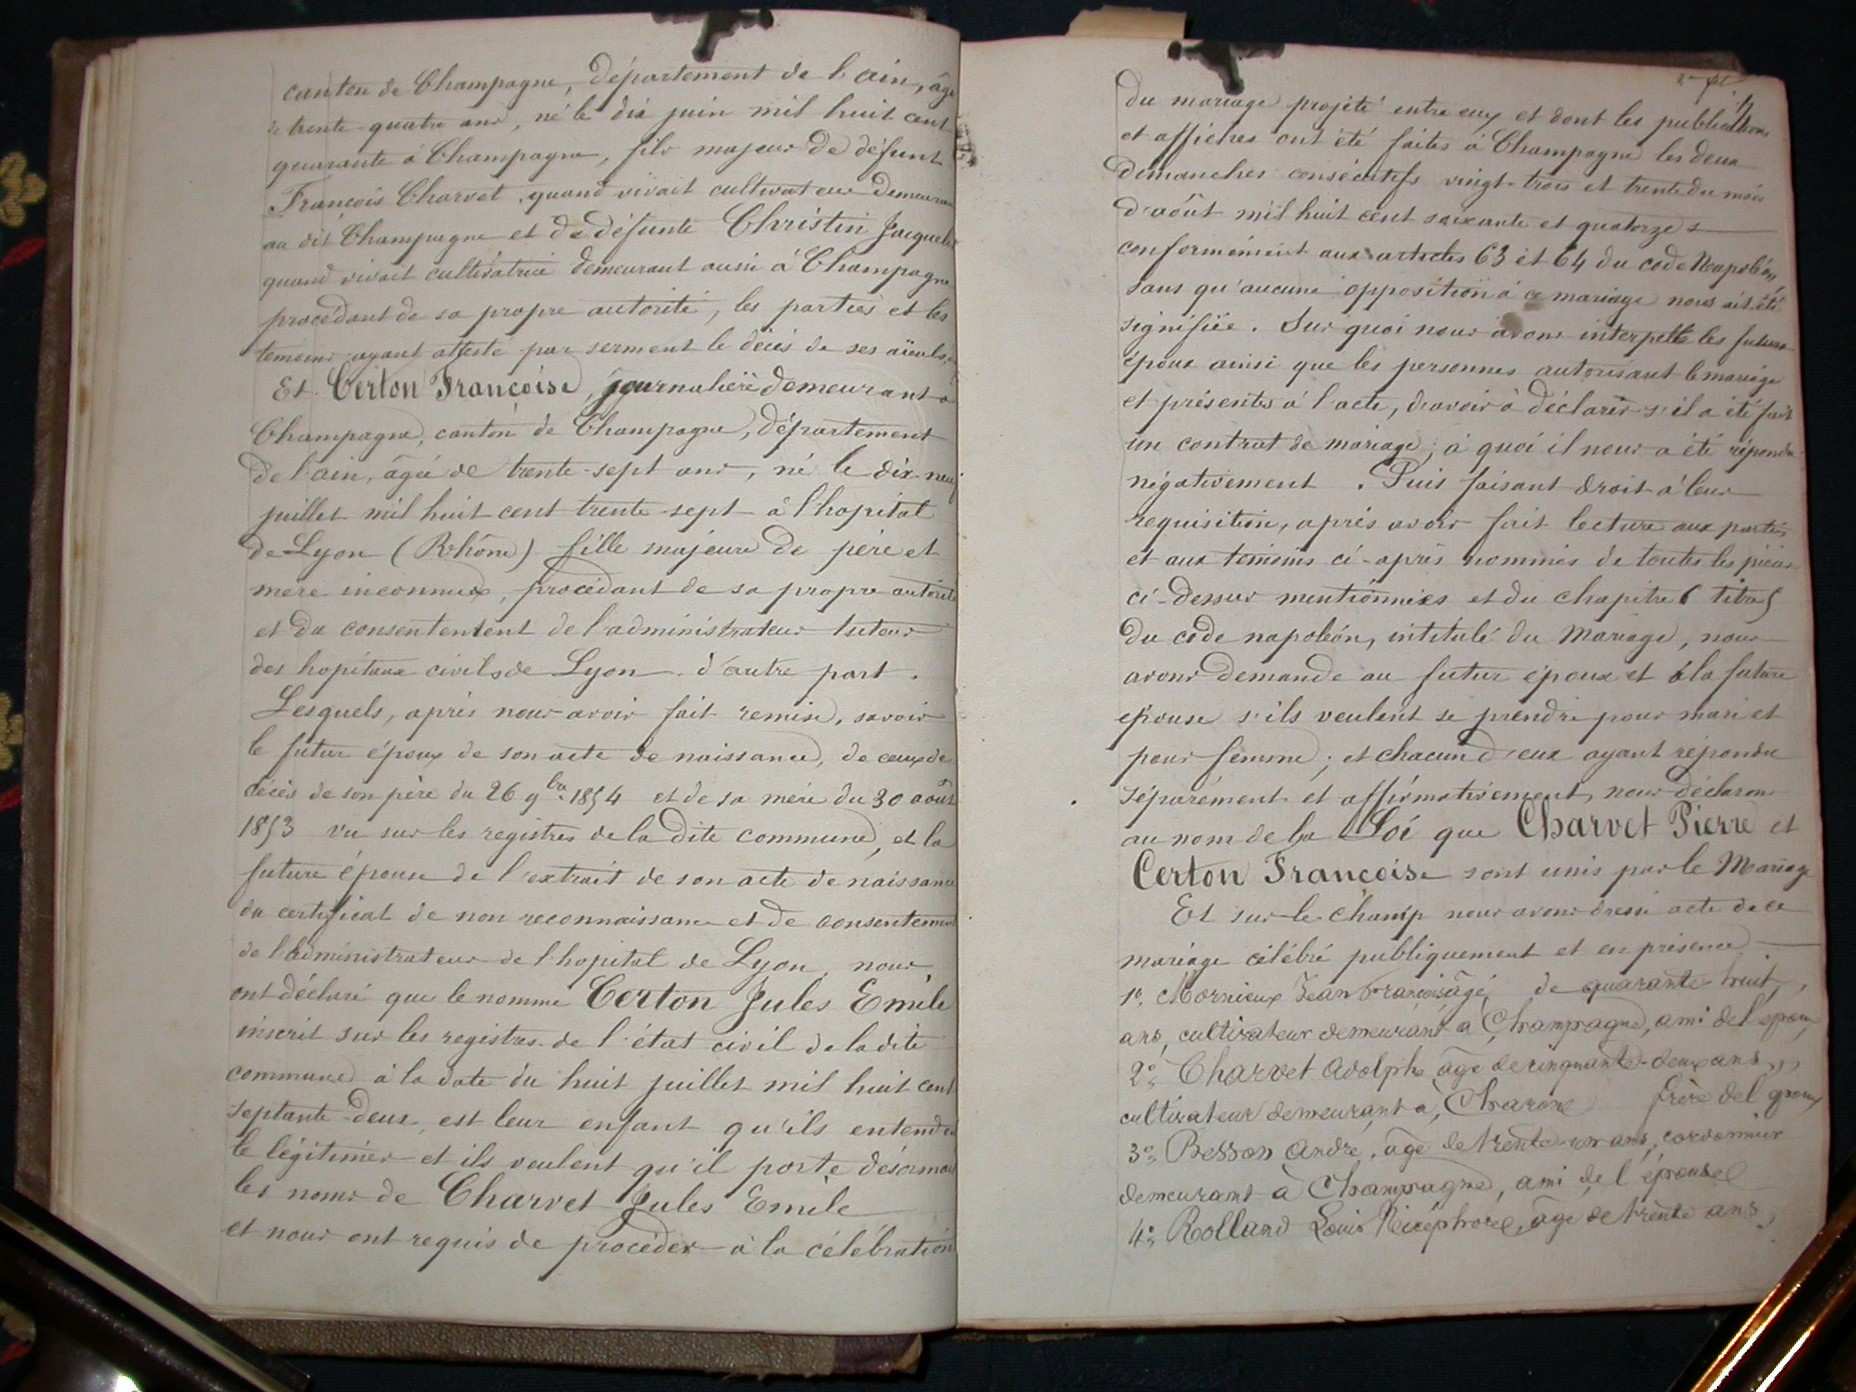 canton de Champagne, département de l'ain, âgé
de trente-quatre ans, né le dix juin mil huit cent
quarante à Champagne, fils majeur de défunt
François Charvet, quand vivait cultivateur demeurant
au dit Champagne et de défunte Christin Jacqueline
quand vivait cultivatrice demeurant aussi à Champagne
procédant de sa propre autorité, les parties et les
temoins ayant attesté par serment le décès de ses aïeuls,
Et Certon Françoise, journalière demeurant a
Champagne, canton de Champagne, département
de l'ain, âgée de trente-sept ans, né le dix-neuf
juillet mil huit cent trente-sept à l'hopital
de Lyon (Rhône) fille majeure de père et
mère inconnus, procédant de sa propre autorité
et du consentement de l'administrateur tuteur
des hopitaux civils de Lyon d'autre part.
Lesquels, après nous avoir fait remise, savoir
le futur époux de son acte de naissance, de ceux de
décès de son père du 26 9bre 1854 et de sa mère du 30 août
1853 vu sur les registres de la dite commune, et la
future épouse de l'extrait de son acte de naissance
du certificat de non reconnaissance et de consentement
de l'administrateur de l'hopital de Lyon, nous
ont déclaré que le nommé Certon Jules Emile
inscrit sur les registres de l'état civil de la dite
commune à la date du huit juillet mil huit cent
septante-deux, est leur enfant qu'ils entendent
le légitimer et ils veulent qu'il porte désormais
les noms de Charvet Jules Emile
et nous ont requis de procéder à la célébration
du mariage projeté entre eux et dont les publications
et affiches ont été faites à Champagne les deux
dimanches consécutifs vingt-trois et trente du mois
d'août mil huit cent soixante et quatorze
conformément aux articles 63 et 64 du code Napoléon
sans qu'aucune opposition à ce mariage nous ait été
signifiée. Sur quoi nous avons interpellé les futurs
époux ainsi que les personnes autorisant le mariage
et présentes à l'acte, d'avoir à déclarer s'il a été fait
un contrat de mariage; à quoi il nous a été répondu
négativement. Puis faisant droit à leur
requisition, après avoir fait lecture aux parties
et aux temoins ci-après nommés de toutes les pièces
ci-dessus mentionnées et du chapitre 6 titre 5
du code napoléon, intitulé du Mariage, nous
avons demandé au futur époux et à la future
épouse s'ils veulent se prendre pour mari et
pour femme; et chacun d'eux ayant répondu
séparément et affirmativement, nous déclarons
au nom de la Loi que Charvet Pierre et
Certon Francoise sont unis par le Mariage
Et sur-le-champ nous avons dressé acte de ce
mariage célébré publiquement et en présence
1° Mornieux Jean François, âgé de quarante-huit
ans, cultivateur demeurant a Champagne, ami de l'epoux
2° Charvet Adolphe âgé de cinquante-deux ans
cultivateur demeurant a, frère de l'epoux
3° Besson Andre, âgé de trente-un ans, cordonnier
demeurant à Champagne, ami de l'épouse
4° Rolland Louis Nicéphore, âgé de trente ans,